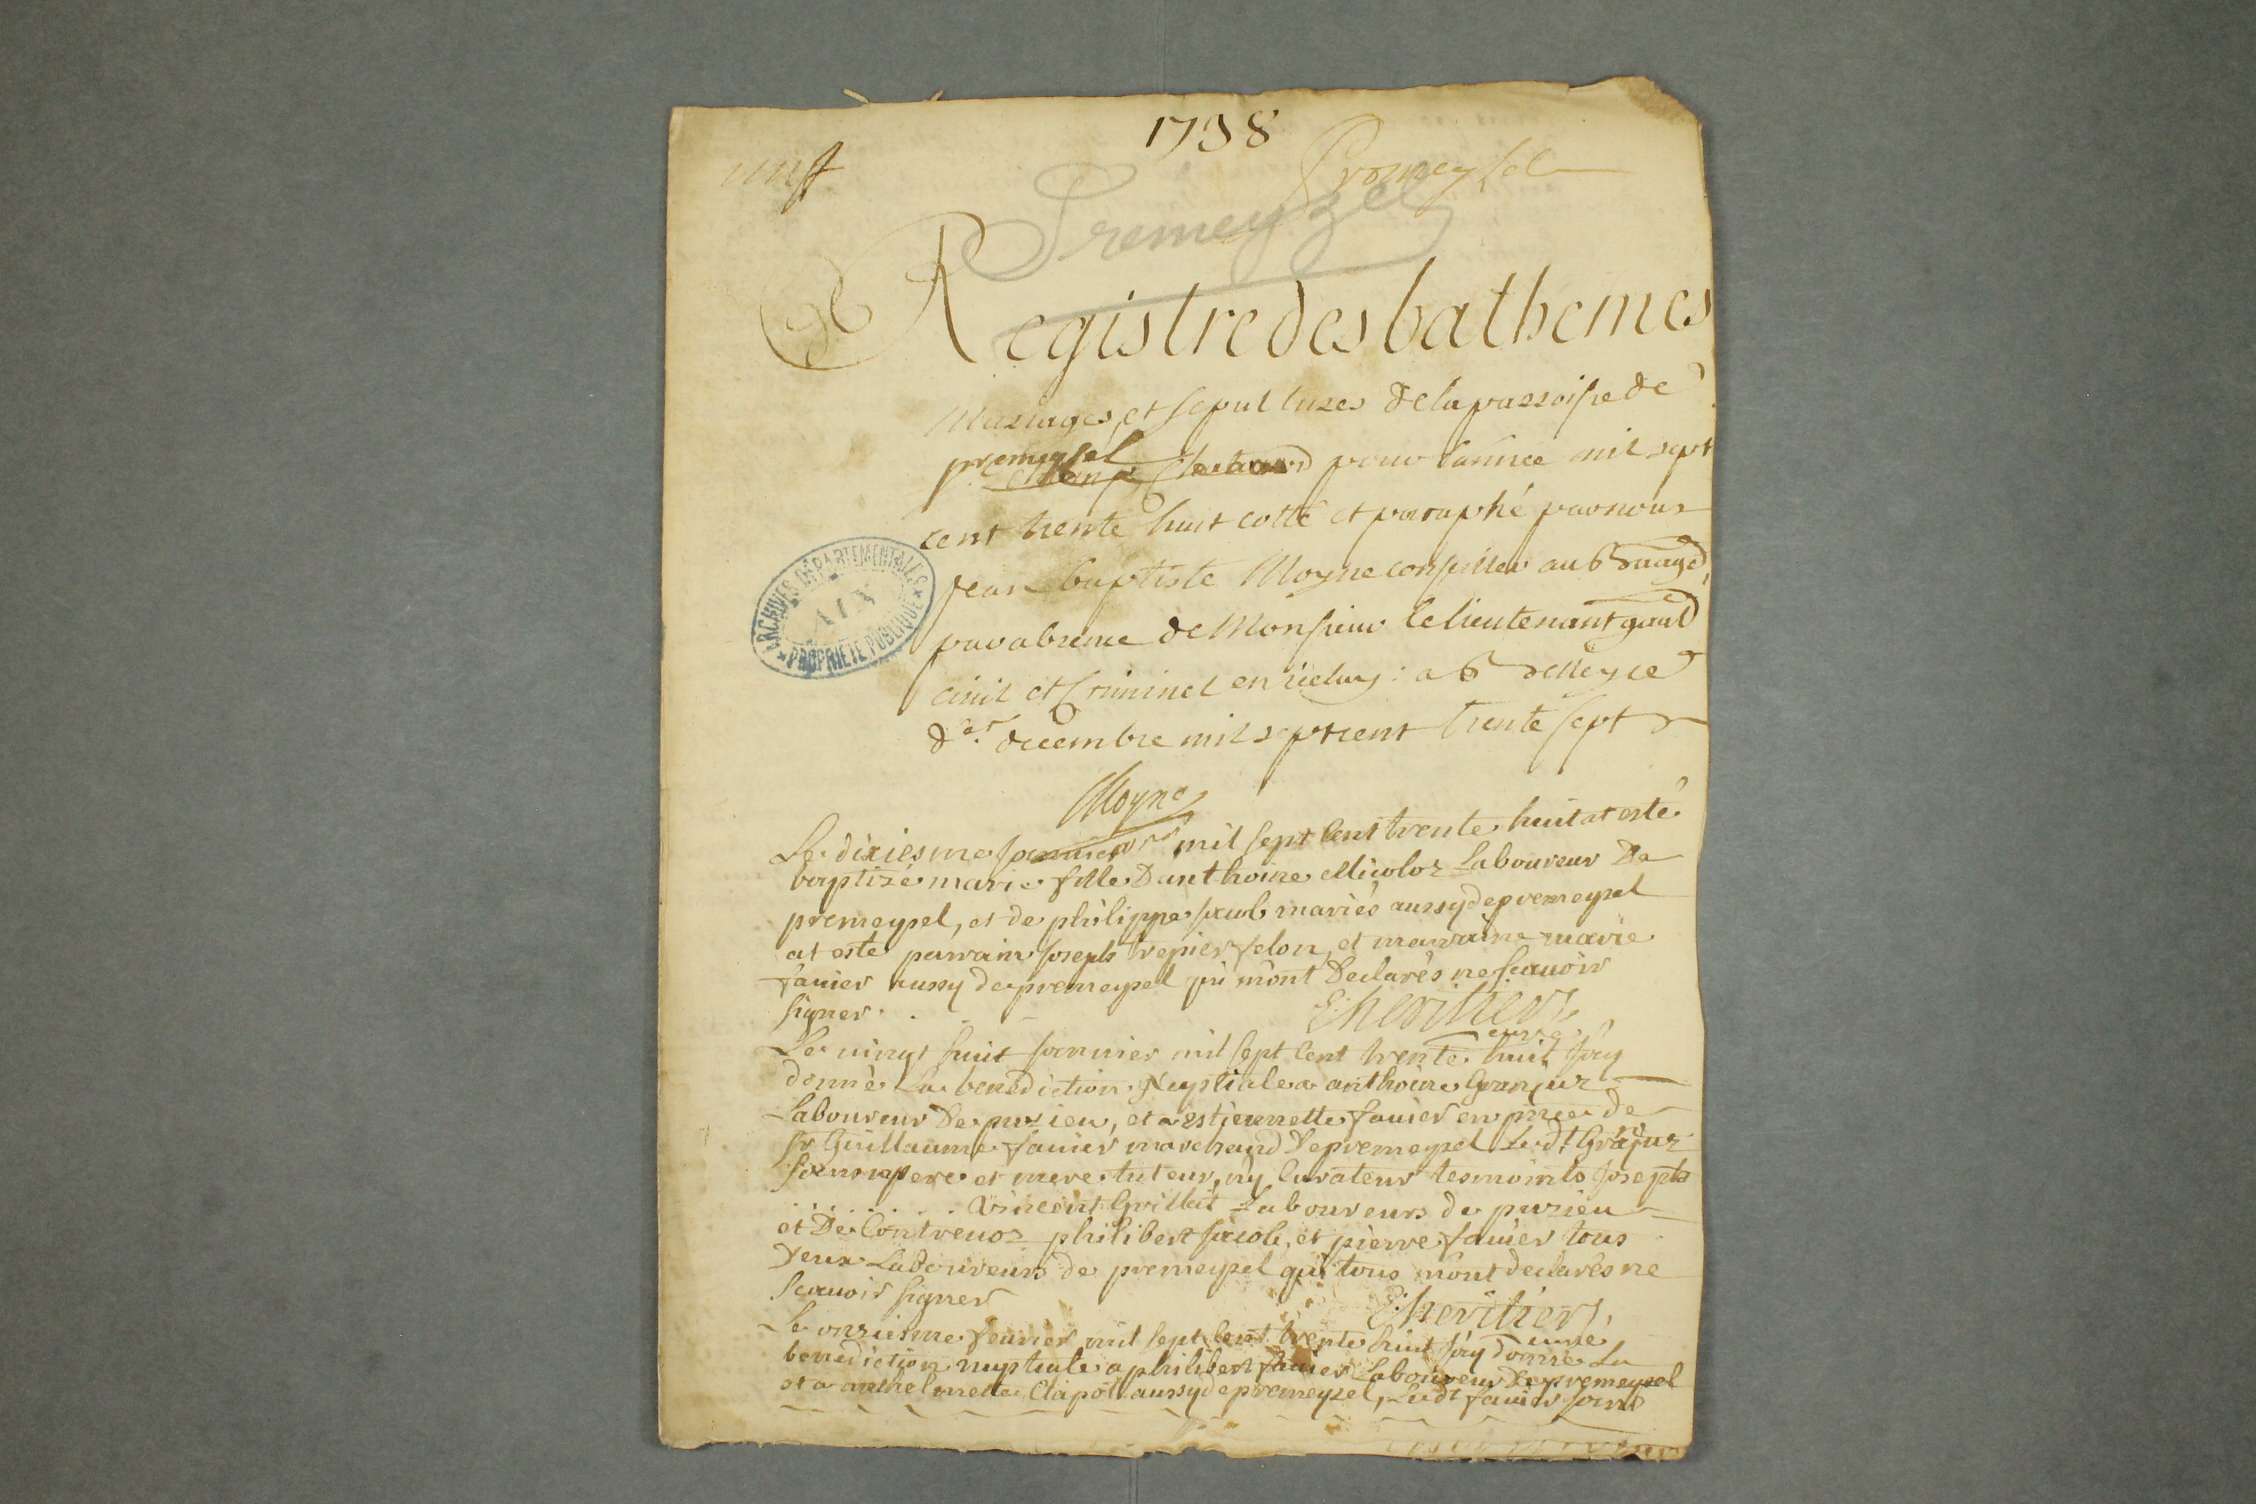 1738
Premeysel
Premeyzel
Registre des bathemes
Mariages et sepultures de la parroisse de
premeysel pour lannee mil sept
cent trente huit cotté et paraphé par nous
Jean baptiste Moyne conseiller au
par absence de Monsieur le lieutenant
civil et Criminel en a
decembre mil sept cent trente sept
Moyne
ARCHIVES DÉPARTEMENTALES
AIN
PROPRIÉTÉ PUBLIQUE
Le dixiesme Janvier mil sept Cent trente huit at esté
baptizé marie fille Danthoine Micoloz Laboureur De
premeysel, et de philippe Jacob mariés aussy de premeysel
at esté parrain Joseph trepier felon, et marraine marie
favier aussy de premeysel qui mont Declarés ne scauoir
signer.
E: heritier
curé
Le vingt huit Janvier mil sept Cent trente huit Jay
donné La benediction Nuptiale a anthoine Granjuz
Laboureur De puzieu, et a estiennette favier en pnce de
Sr Guillaume favier marchand De premeysel Ledt Granjuz
sans pere et mere tuteur, ny Curateur tesmoints Joseph
. . . . . . . Vincent Grillet Laboureurs de puzieu
et De Contrevoz philibert Jacob, et pierre favier tous
Deux Laboureurs de premeysel qui tous mont declarés ne
Scauoir signer
E: heritier
curé
Le onziesme fevrier mil sept Cent trente huit Jay Donné La
benediction nuptiale a philibert favier Laboureur De premeysel
et a Clapot aussy de premeyzel, Ledt favier sans